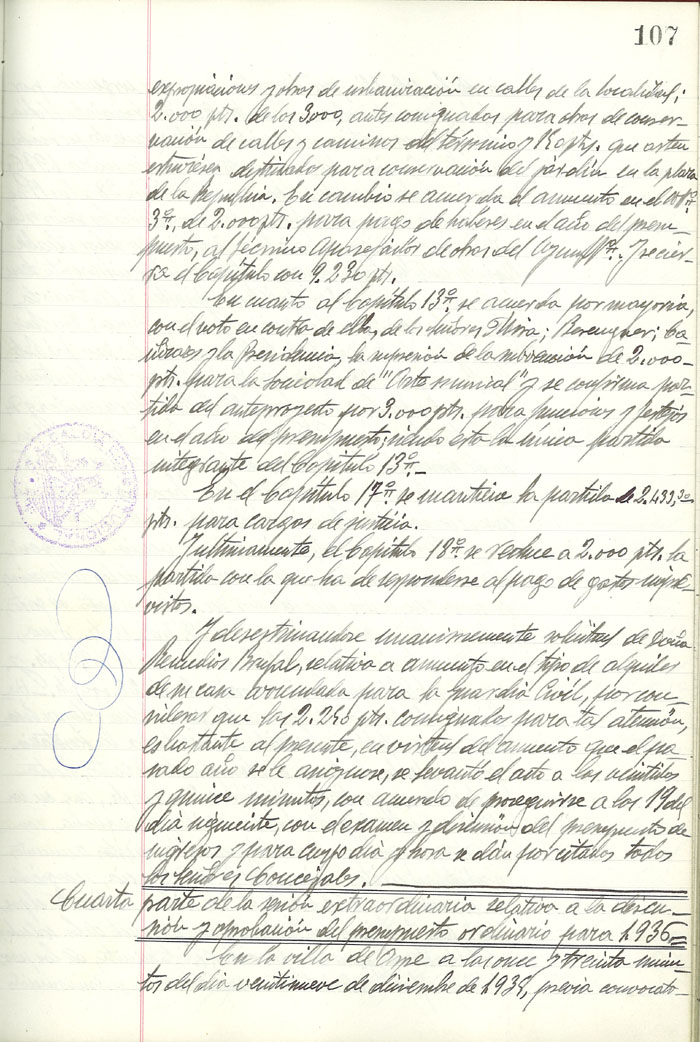 107
expropiaciones y obras de urbanización en calles de la localidad;
2.000 pts. de los 3000, antes consignados para obras de conser-
vación de calles y caminos del término y pts. que antes
estuvieron destinadas para conservación del jardín en la plaza
de la República. En cambio se acuerda el aumento en el artº
3º, de 2.000 pts. para pago de haberes en el año del presu-
puesto, al técnico Aparejador de obras del Ayunttº. Y se cier-
ra el Capítulo con 9.230 pts.
En cuanto al Capítulo 13º, se acuerda por mayoría,
con el voto en contra de ella, de los señores Mira; Berenguer;
y la Presidencia, la supresión de la subvención de 2.000
pts. para la sociedad de "Arte musical" y se confirma par-
tida del anteproyecto por 3.000 pts. para funciones y festejos
en el año del presupuesto; siendo ésta la única partida
integrante del Capítulo 13º.-
En el Capítulo 17º se mantiene la partida de 2.433,30
pts. para cargos de justicia.
Y ultimamente, el Capítulo 18º se reduce a 2.000 pts. la
partida con la que ha de responderse al pago de gastos impre-
vistos.
Y desestimandose unanimemente solicitud de Doña
Remedios Brufal, relativa a aumento en el tipo de alquiler
de su casa arrendada para la Guardia Civil, por con-
siderar que las pts. consignadas para tal atención,
es bastante al presente, en virtud del aumento que el pa-
sado año se le asignase, se levantó el acto a las veintidos
y quince minutos, con acuerdo de proseguirse a las 19 del
día siguiente, con el examen y discusión del presupuesto de
ingresos y para cuyo día y hora se dán por citados todos
los señores Concejales.
Cuarta parte de la sesión extraordinaria relativa a la discu-
sión y aprobación del presupuesto ordinario para 1.936
En la villa de Aspe a las once y treinta minu-
tos del día veintinueve de diciembre de 1.935, previa convocato-